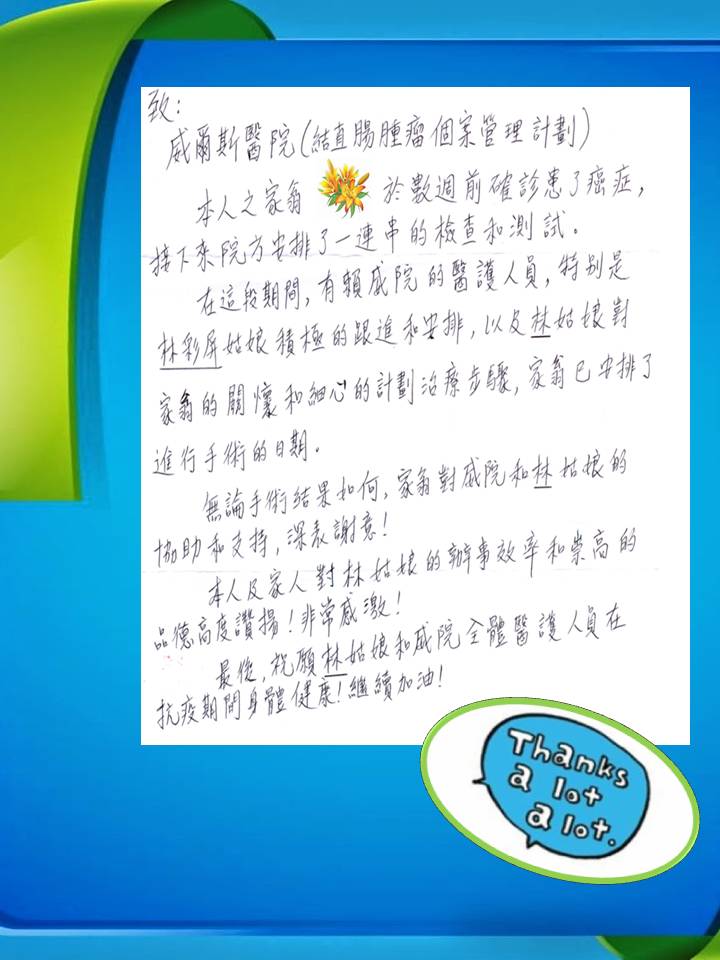 致：
威爾斯醫院(結直腸腫瘤個案管理計劃)
本人之家翁 於數週前確診患了癌症，
接下來院方安排了一連串的檢查和測試。
在這段期間，有賴威院的醫護人員，特別是
林彩屏姑娘積極的跟進和安排，以及林姑娘對
家翁的關懷和細心的計劃治療步驟，家翁已安排了
進行手術的日期。
無論手術結果如何，家翁對威院和林姑娘的
協助和支持，深表謝意！
本人及家人對林姑娘的辦事效率和崇高的
品德高度讚揚！非常感激！
最後，祝願林姑娘和威院全體醫護人員在
抗疫期間身體健康！繼續加油！
Thanks
a lot
a lot.